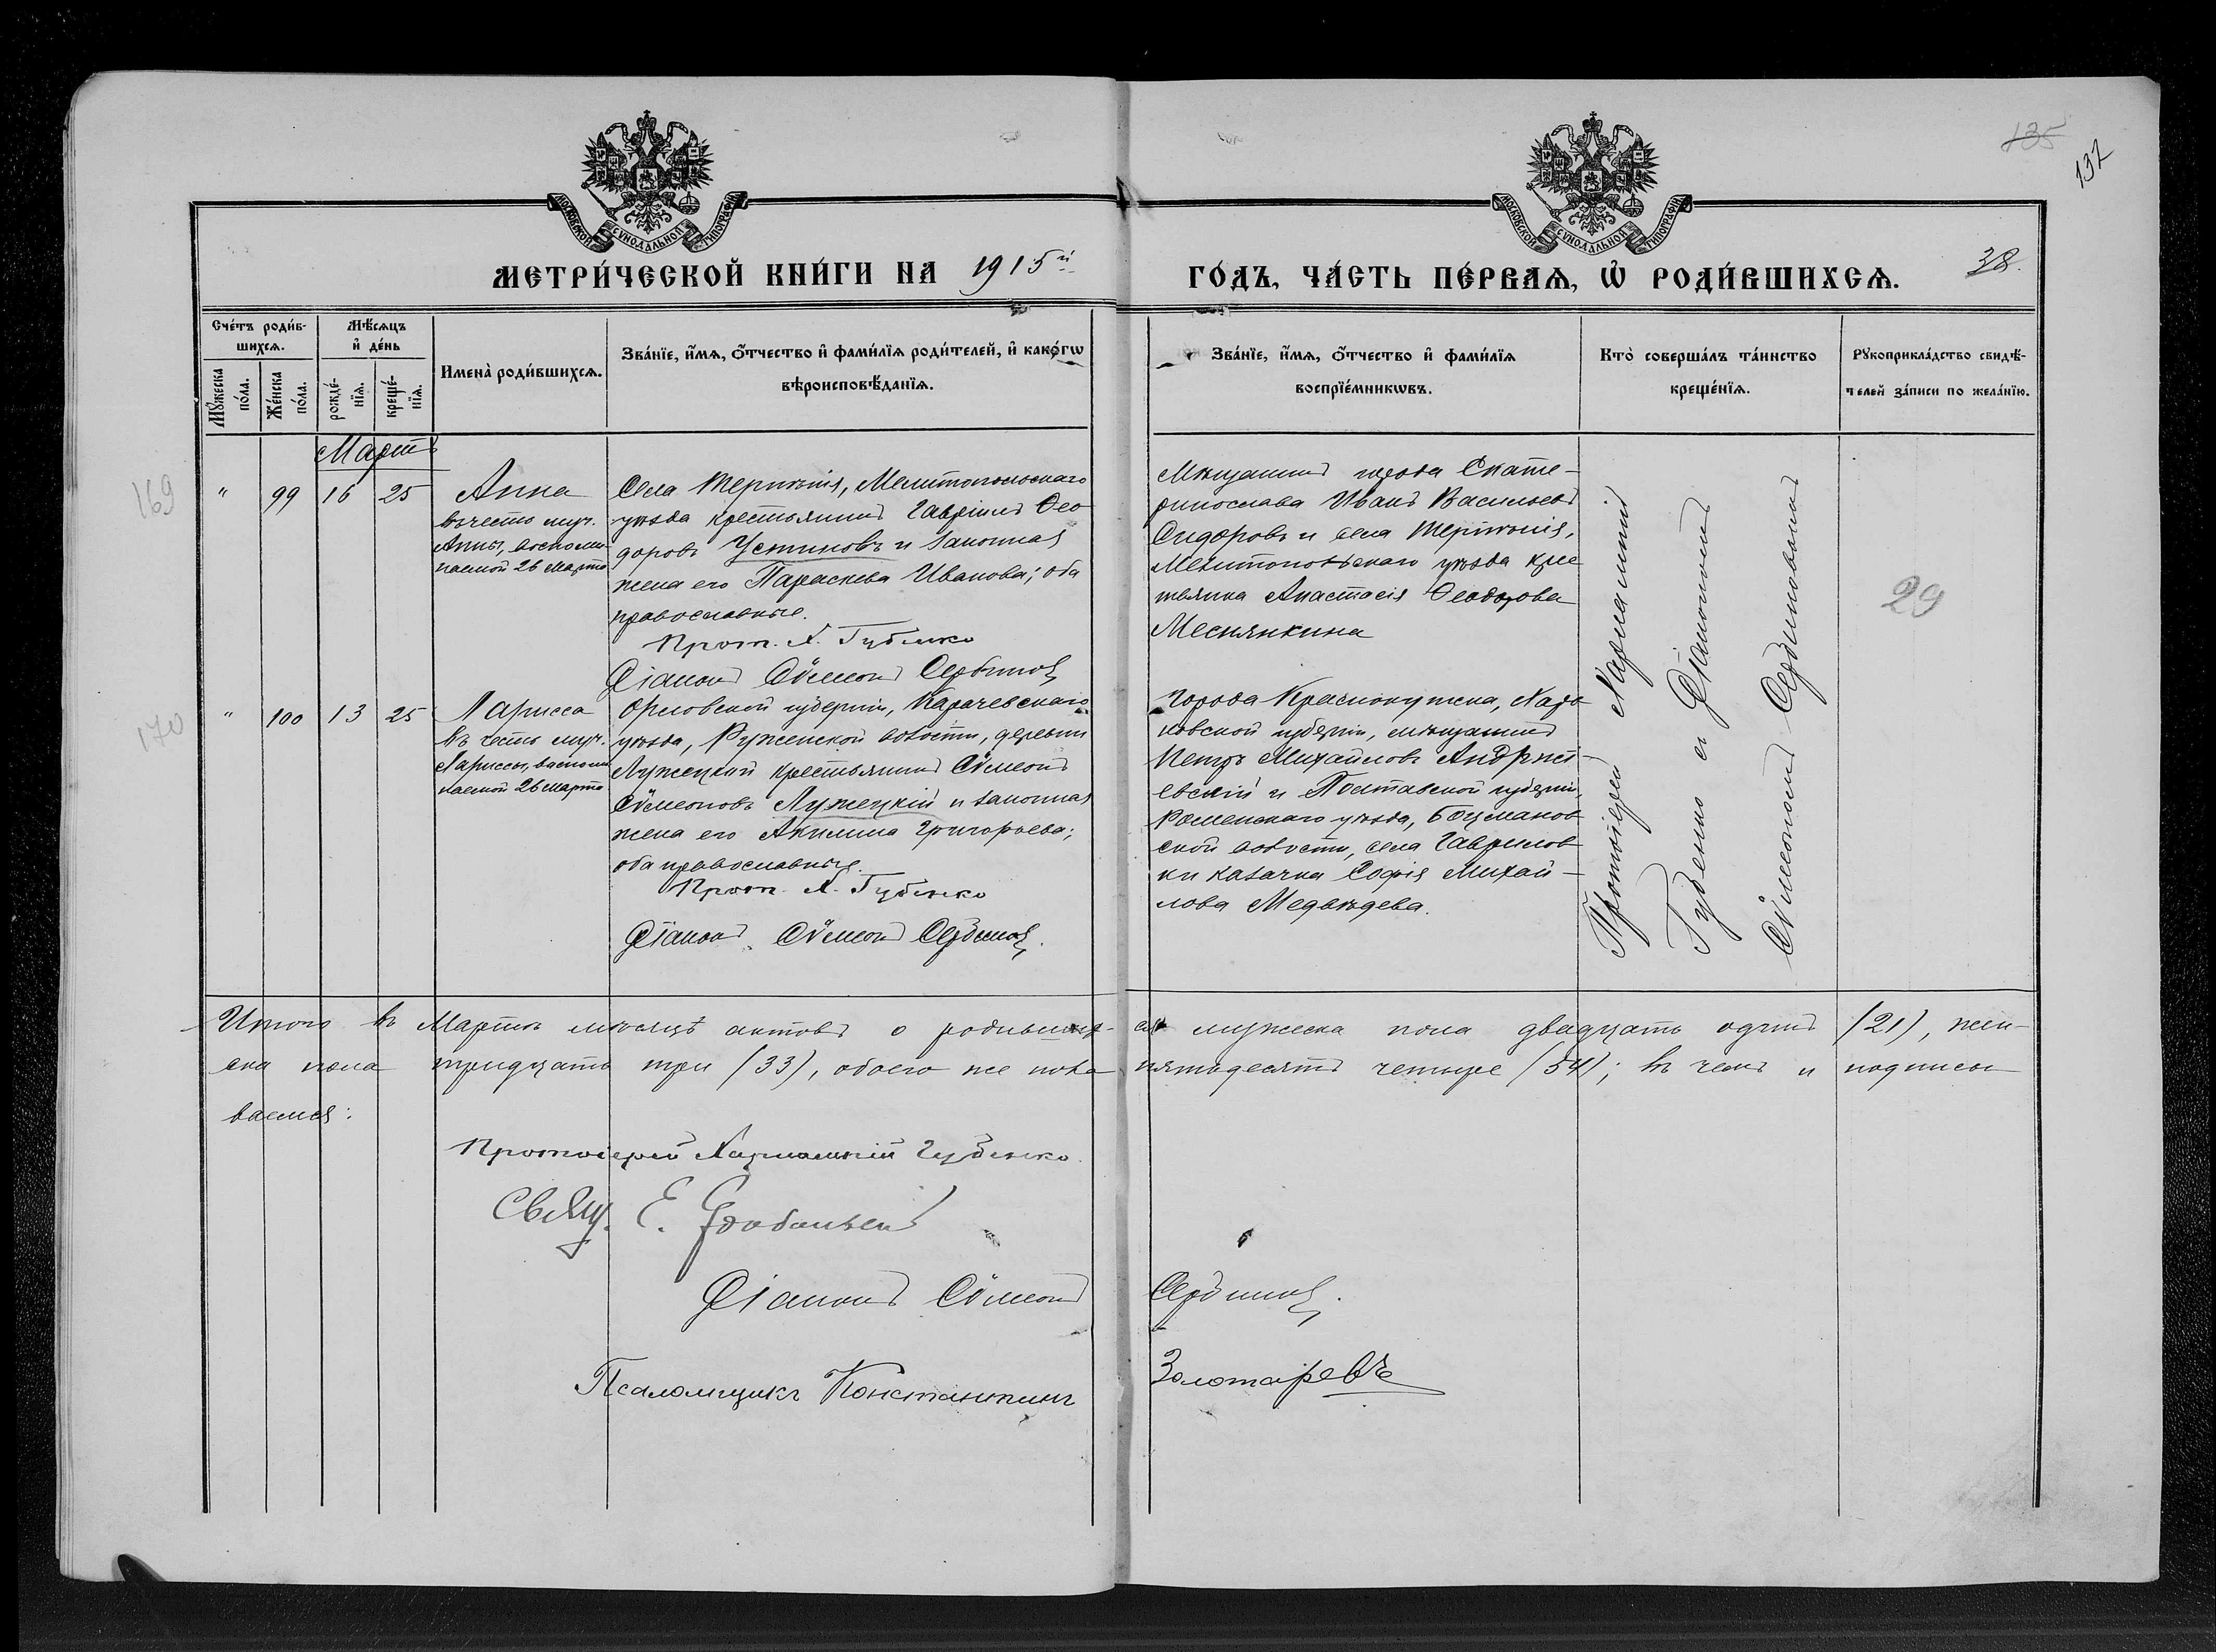 135
137
МОСКОВСКОЙ СУНОДАЛЬНОЙ ТИПОГРАФІИ
МОСКОВСКОЙ СУНОДАЛЬНОЙ ТИПОГРАФІИ
МЕТРИ́ЧЕСКОЙ КНИ́ГИ НА 1915й
ГО́ДЪ, ЧА́СТЬ ПЕ́РВАѦ, Ѡ҆ РОДИ́ВШИХСѦ.
38.
Сче́тъ роди́в-
шихсѧ.
Мꙋ́жеска
по́ла.
Же́нска
по́ла.
Мѣ́сѧцъ
и҆ де́нь
рожде́-
нїѧ.
креще́-
нїѧ.
Имена̀ роди́вшихсѧ.
Зва́нїе, и҆́мѧ, ѻ҆́тчество и҆ фами́лїѧ роди́телей, и҆ како́гѡ
вѣроисповѣ́данїѧ.
Зва́нїе, и҆́мѧ, ѻ҆́тчество и҆ фами́лїѧ
воспрїе́мникѡвъ.
Кто̀ соверша́лъ та́инство
креще́нїѧ.
Рꙋкоприкла́дство свидѣ́-
телей за́писи по жела́нїю.
Мартъ
169
" 99 16 25
Анна
въ честь муч.
Анны, воспоми-
наемой 26 Марта
Села Терпѣнія, Мелитопольскаго
уѣзда крестьянинъ Гавріилъ Ѳео-
доровъ Устиновъ и законная
жена его Параскева Иванова; оба
православные.
Прот. Х. Губенко
Діаконъ Сѵмеонъ Сербиновъ
Мѣщанинъ города Екате-
ринослава Иванъ Васильевъ
Сидоровъ и села Терпѣнія,
Мелитопольскаго уѣзда кре
стьянка Анастасія Ѳеодорова
Меснянкина
170
" 100 13 25
Ларисса
въ честь муч.
Лариссы, воспоми
наемой 26 марта
Орловской губерніи, Карачевскаго
уѣзда, Руженской волости, деревни
Лужецкой крестьянинъ Сѵмеонъ
Сѵмеоновъ Лужецкій и законная
жена его Акилина Григорьева;
оба православные.
Прот. Х. Губенко
Діаконъ Сѵмеонъ Сербиновъ.
Города Краснокутска, Харь
ковской губерніи, мѣщанинъ
Петръ Михайловъ Андрѣ-
евскій и Полтавской губерніи,
Роменскаго уѣзда,
ской волости, села Гаврилов
ки казачка Софія Михай-
лова Медвѣдева.
Протоіерей Харлампій
Губенко и Діаконъ
Сѵмеонъ Сербиновъ
29
Итого въ Мартѣ мѣсяцѣ актовъ о родивших-ся мужеска пола двадцать одинъ (21), жен-
ска пола тридцать три (33), обоего же пола пятьдесятъ четыре (54); въ чемъ и подписы-
ваемся:
Протоіерей Харлампій Губенко.
Свящ. Е.
Діаконъ Сѵмеонъ Сербиновъ.
Псаломщикъ Константинъ Золотаревъ